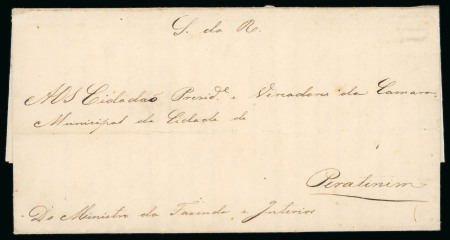 S. da R.
Al S Cidadãõ Presid.e e Vereadores da Camara
Municipal da Cidade de
Peratinim
Do Ministro da Fazenda e Interior